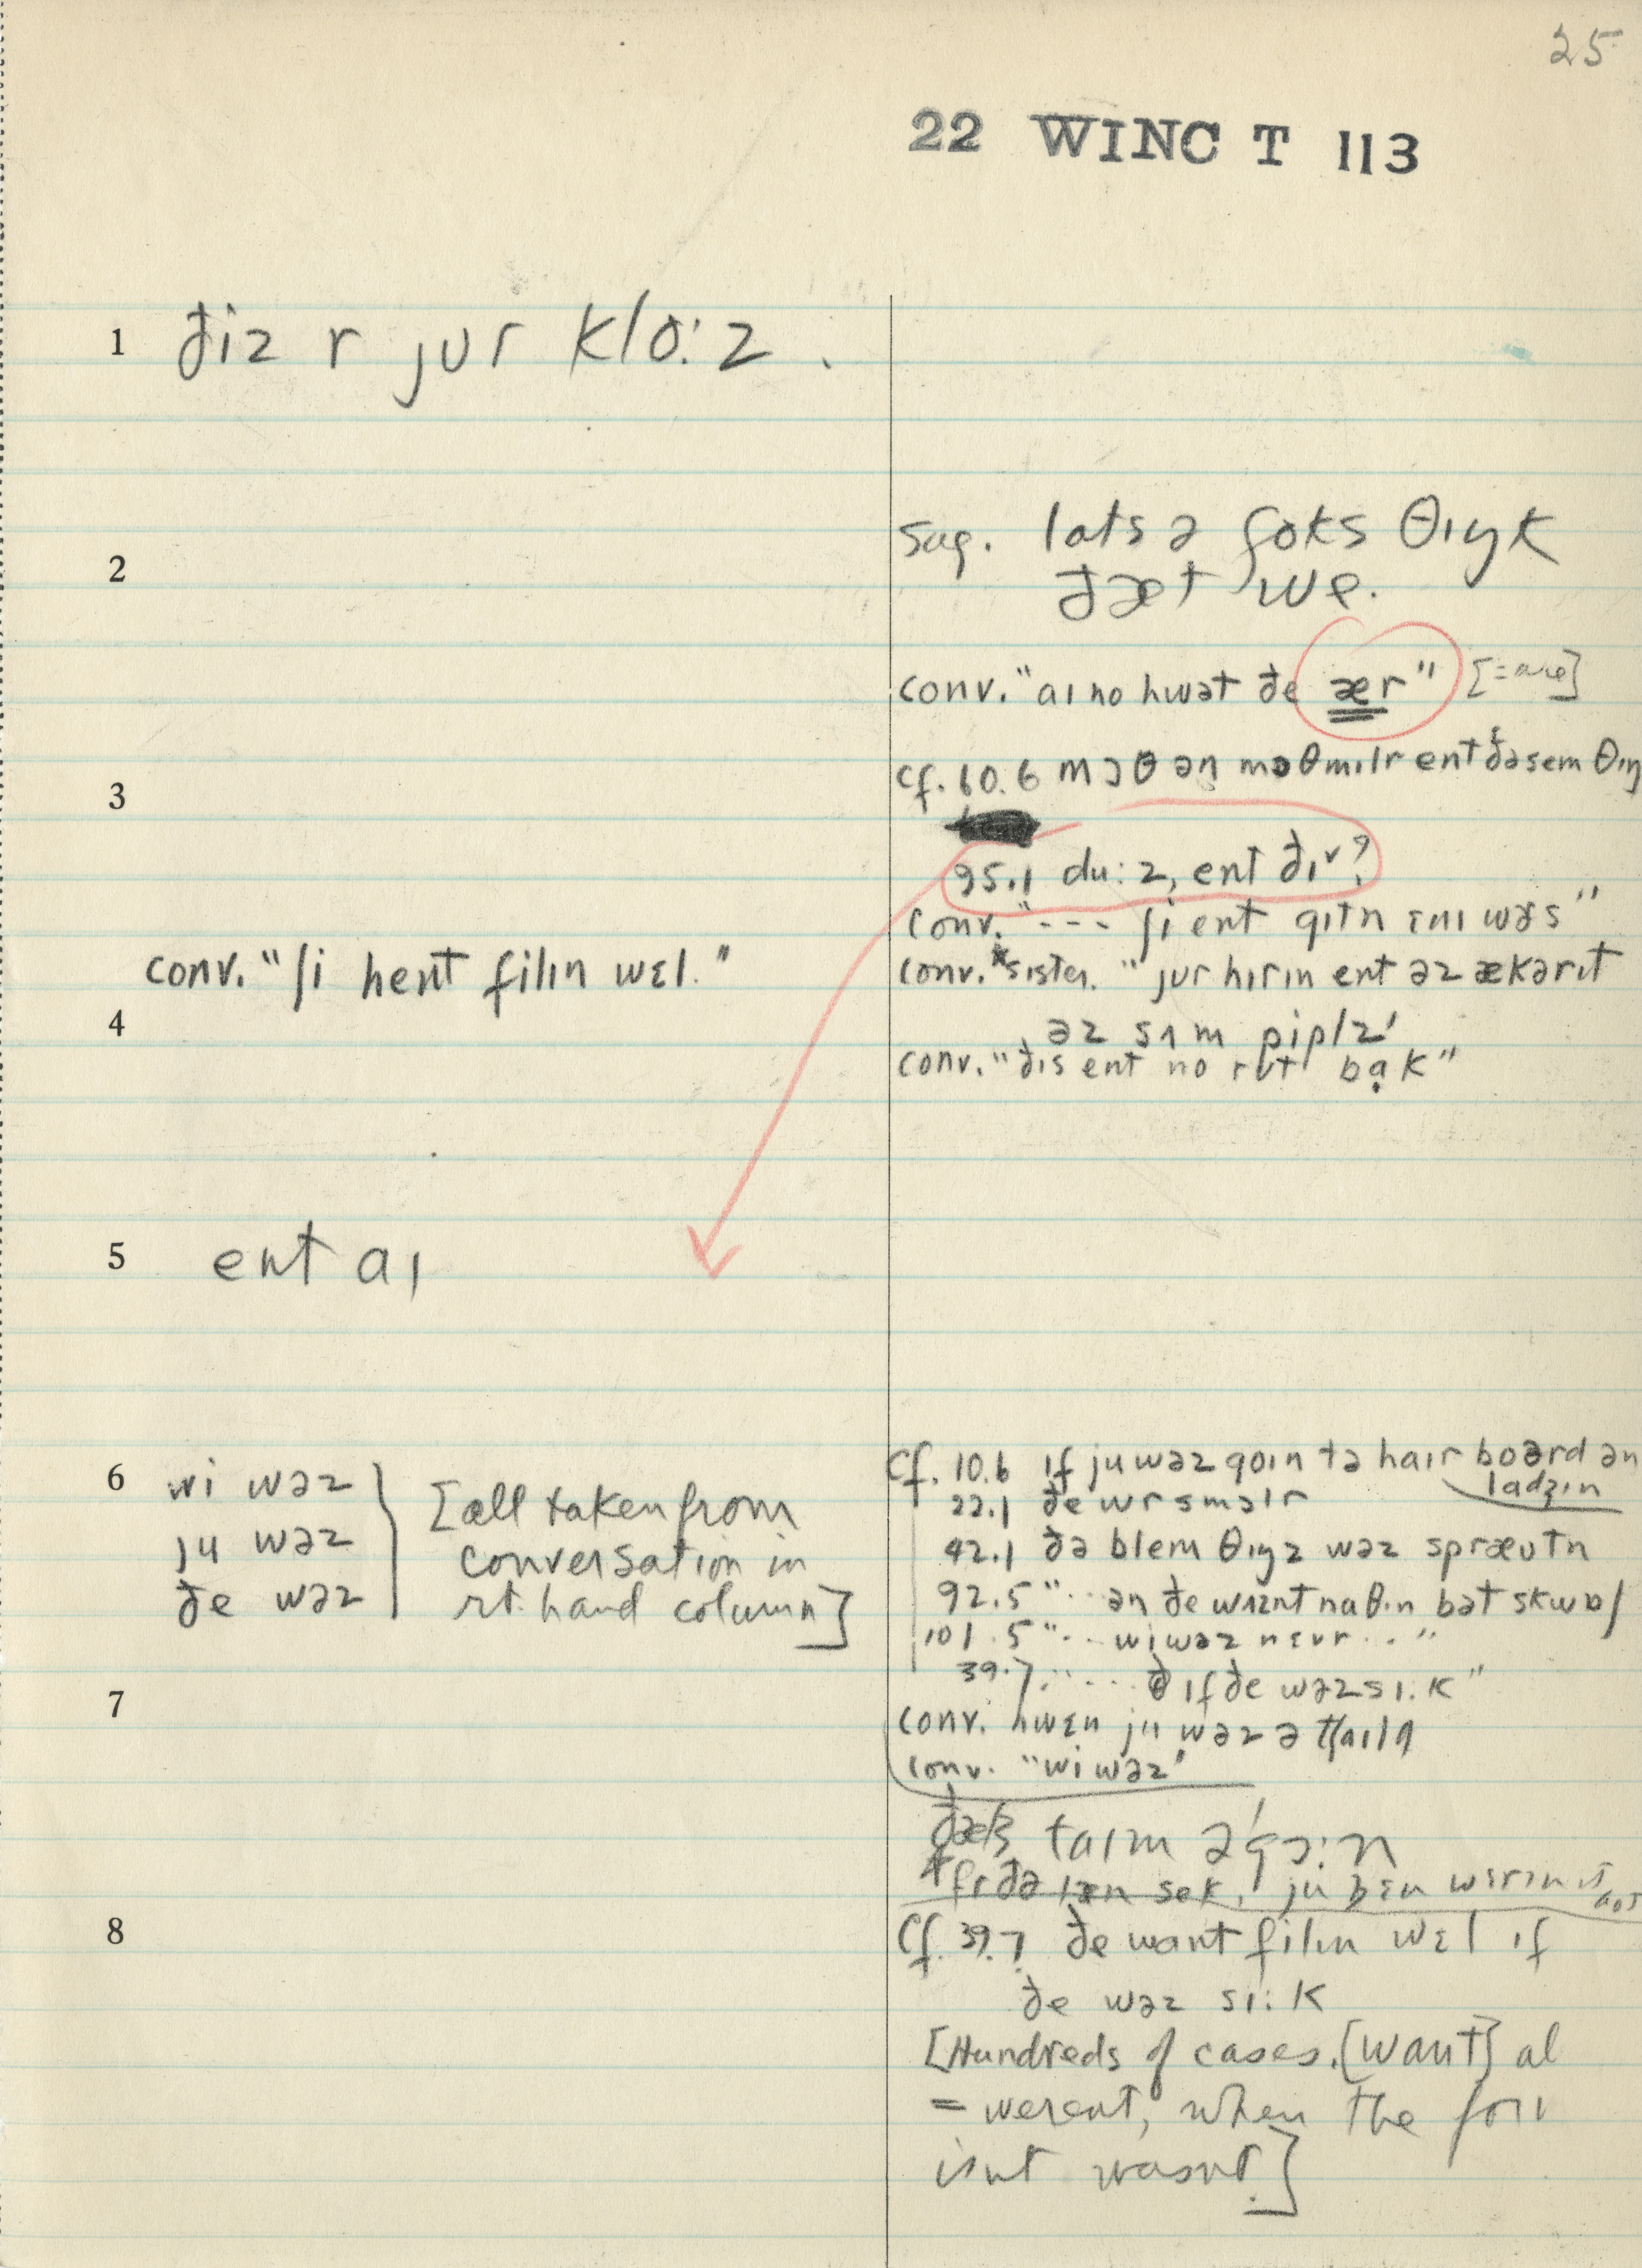 25
22 WINC T 113
1 ðiz r jʊr klo:z .
2
sug. lats ə foks θɪŋk
ðæt we.
conv. "aɪ no hwət ðe ær" [=are]
3
cf. 60.6 mɔθ ən mɔθmɪlr ent ðə sem θɪŋ
95.1 du:z, ent ðɪr?
conv. "--- ʃi ent gɪtn ɛnɪ wɝs"
conv. "ʃi hent filɪn wɛl."
conv.* sister. "jʊr hɪrɪn ent əz ækərɪt
4
əz sʌm piplz'
conv. "ðɪs ent no rʊt bɑk"
5 ent aɪ
6 wi wəz
ju wəz
ðe wəz
[all taken from
conversation in
rt. hand column]
cf. 10.6 ɪf ju wəz goɪn tə haɪr board ən
ladʒɪn
22.1 ðe wr smɔlr
42.1 ðə blem θɪŋz wəz spræʊtn
92.5 "·· ən ðe wʌznt nʌθɪn bət skwɒʃ
101.5 "··· wi wəz nɛvr ... "
39.7. "···· ɪf ðe wəz sɪ:k"
7
conv. hwɛn ju wəz ə tʃaɪld
conv. "wi wəz'
taɪm ə'gɔ:n
8
cf. 39.7 ðe want filɪn wɛl ɪf
ðe wəz sɪ:k
[Hundreds of cases. [want] al
= werent, when the
isnt wasnt.]